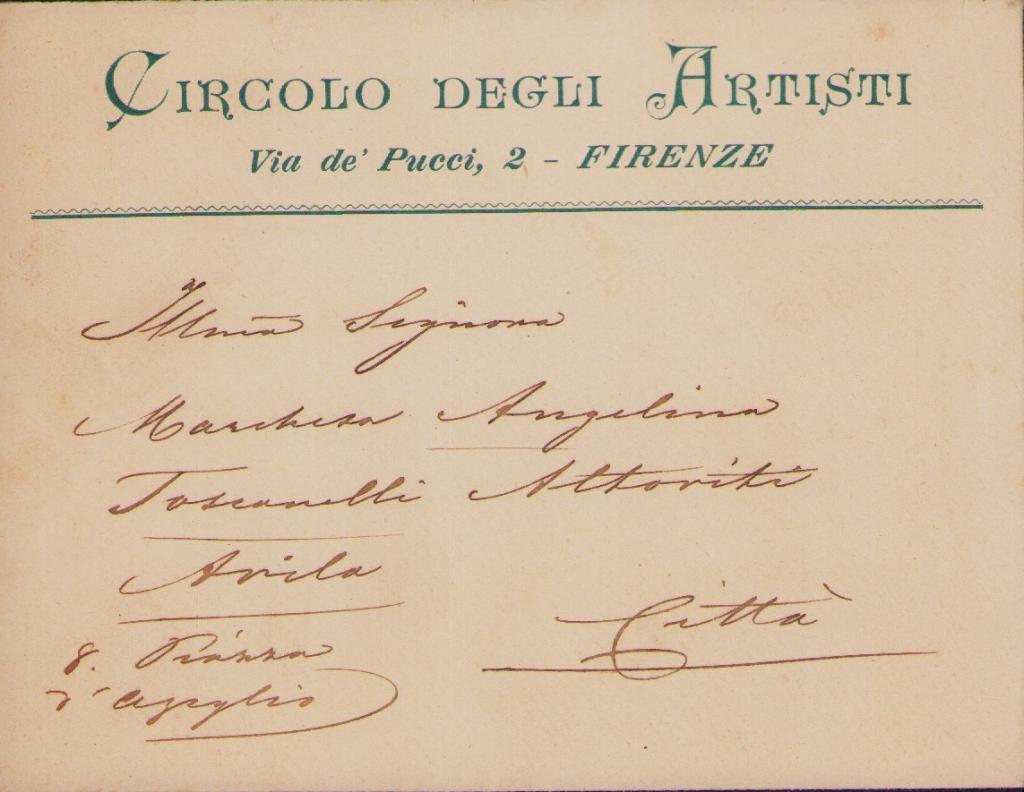 CIRCOLO DEGLI ARTISTI
Via de' Pucci, 2 - FIRENZE
Illma Signora
Marchesa Angelina
Toscanelli Altoviti
Avila
Città
8. Piazza
d'Azeglio